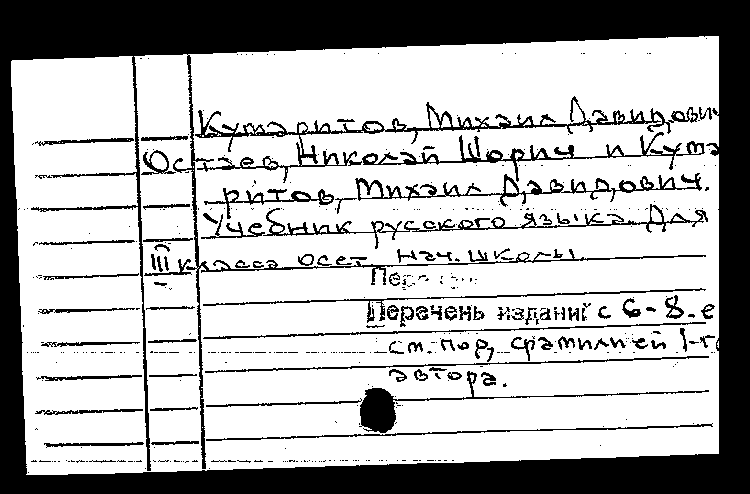 Кутаритов, Михаил Давидович
Остаев, Николай Шорич и Кута
ритов, Михаил Давидович.
Учебник русского языка. Для
III класса осет. нач. школы.
Перечень изданий с 6-8-е
см. под фамилией 1-го
автора.